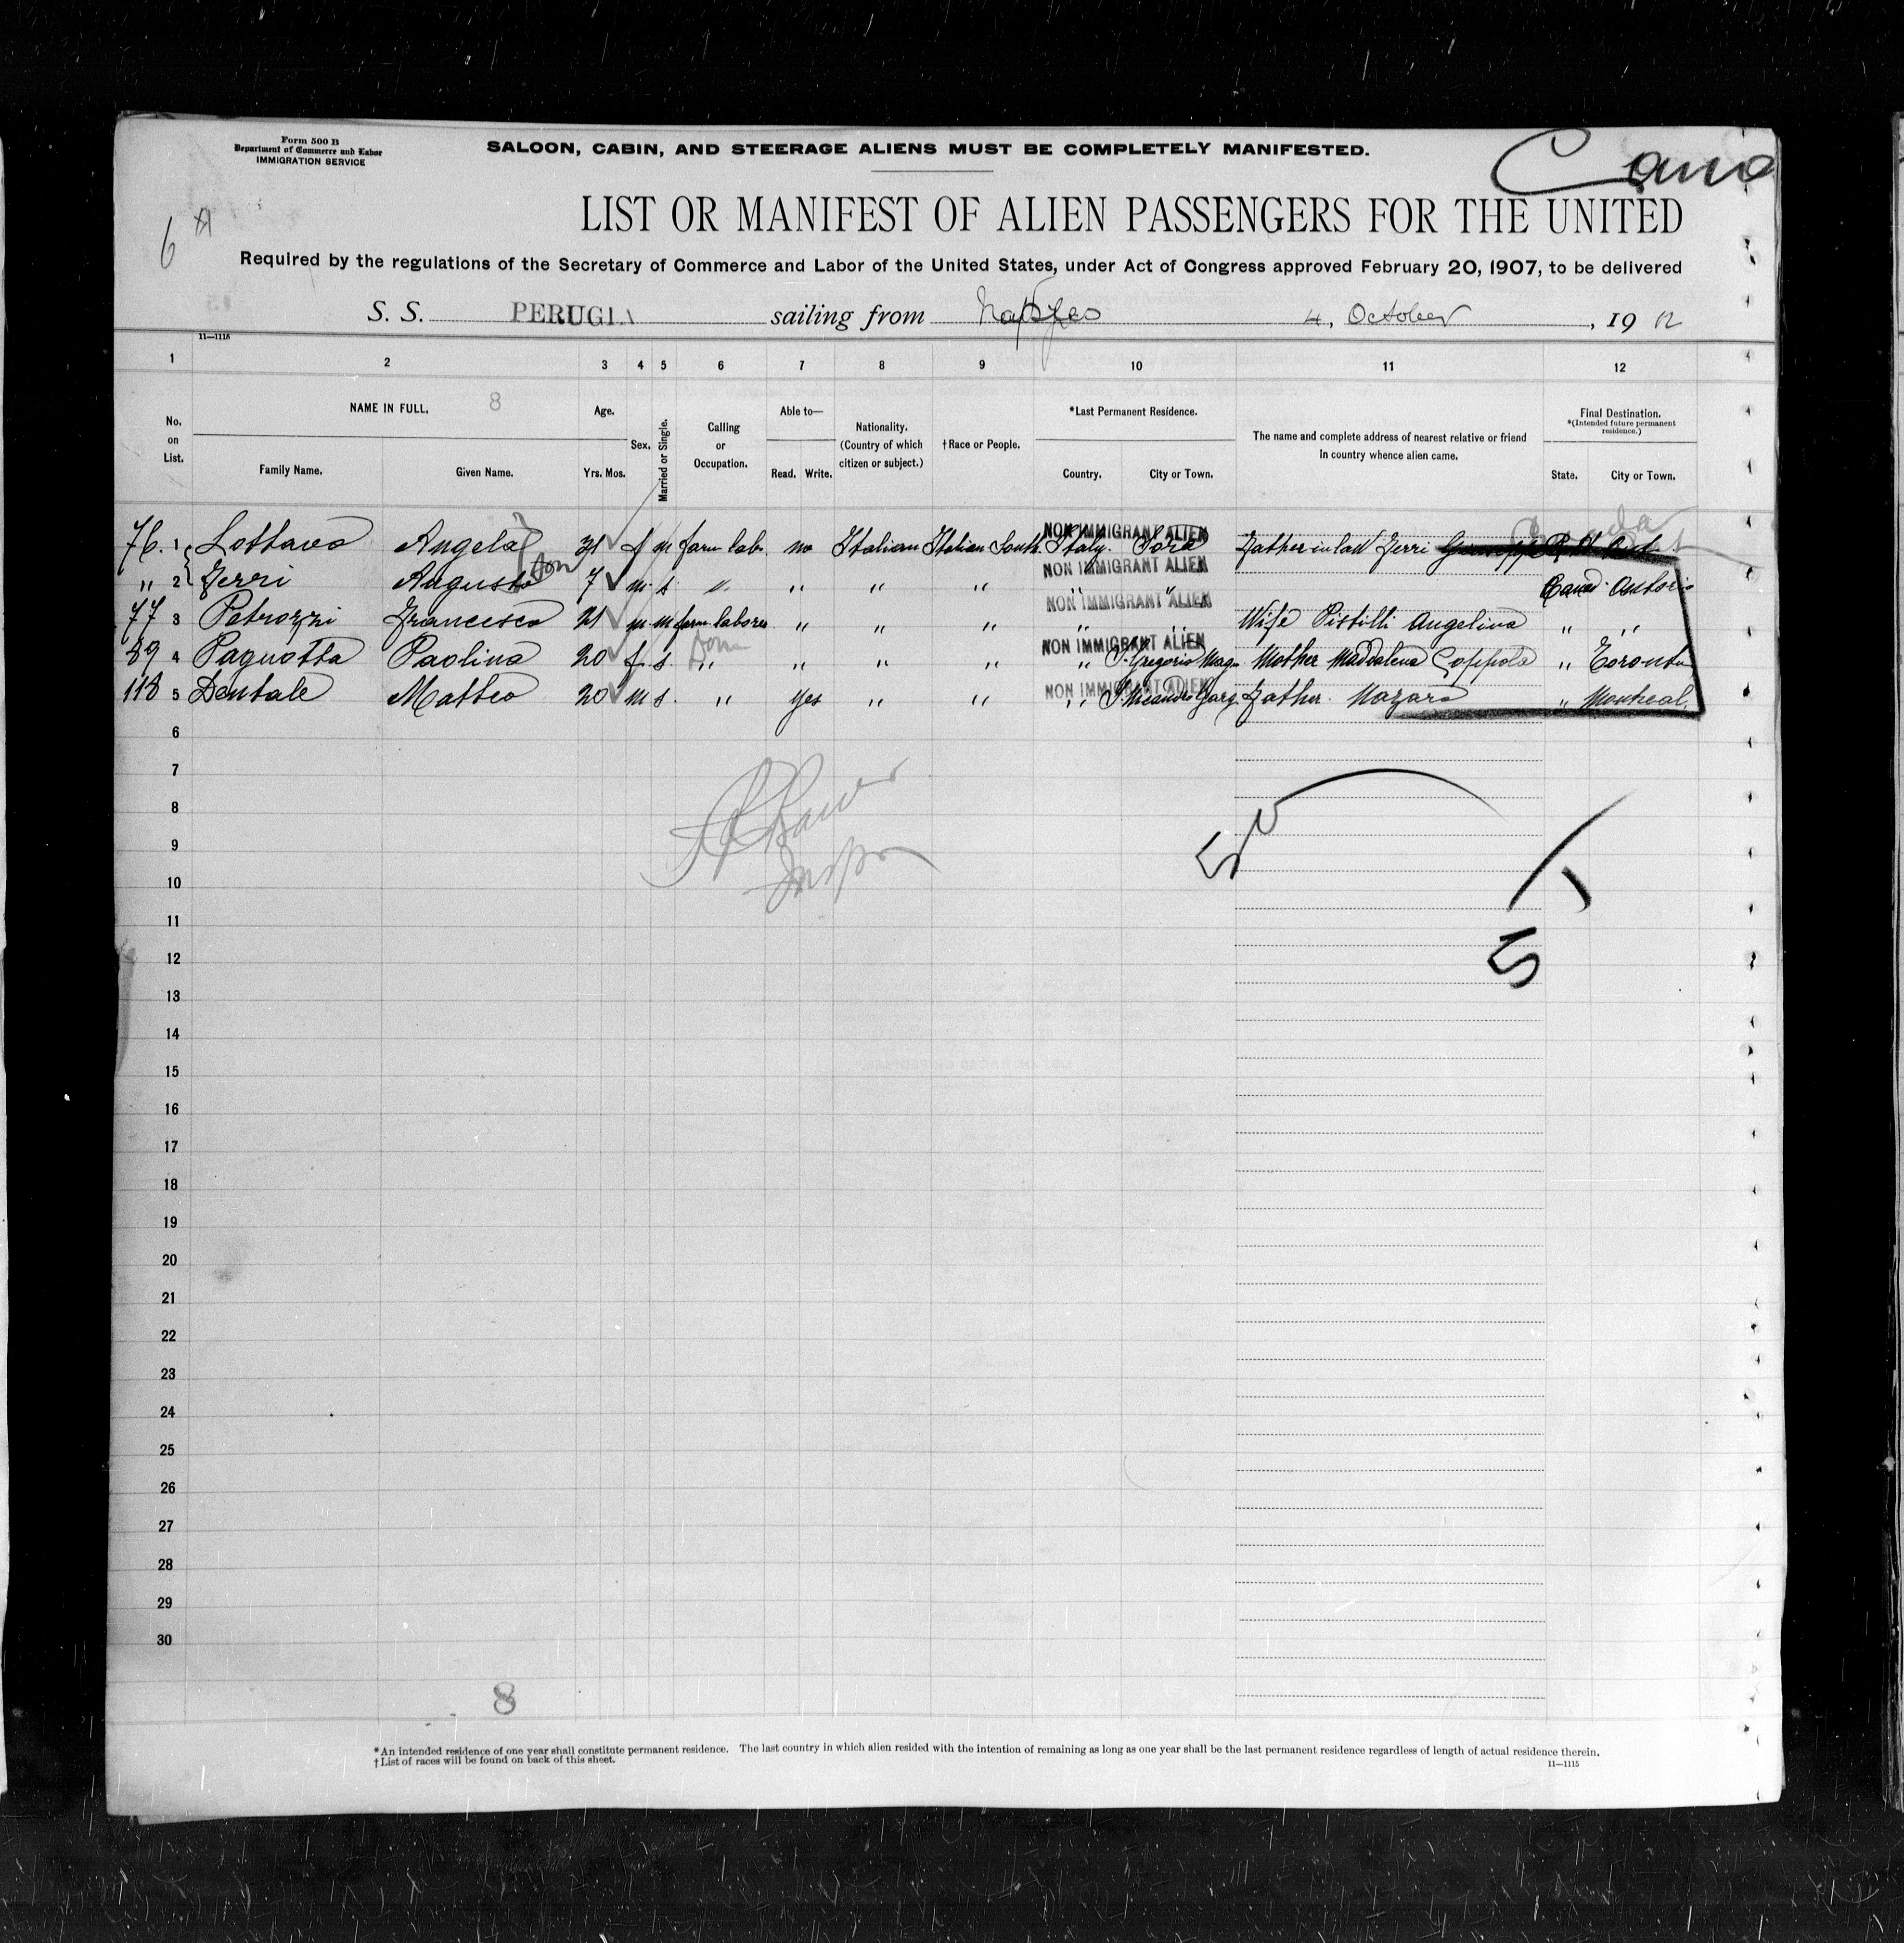 Form 500 B
Department of Commerce and Labor
IMMIGRATION SERVICE
SALOON, CABIN, AND STEERAGE ALIENS MUST BE COMPLETELY MANIFESTED.
6
LIST OR MANIFEST OF ALIEN PASSENGERS FOR THE UNITED
Required by the regulations of the Secretary of Commerce and Labor of the United States, under Act of Congress approved February 20, 1907, to be delivered
S. S. PERUGIA sailing from Naples 4, October, 1912
11—1115
1 2 3 4 5 6 7 8 9 10 11 12
No. on List. NAME IN FULL. 8 Family Name. Given Name. Age. Yrs. Mos. Sex. Married or Single. Calling or Occupation. Able to— Read. Write. Nationality. (Country of which citizen or subject.) †Race or People. *Last Permanent Residence. Country. City or Town. The name and complete address of nearest relative or friend in country whence alien came. Final Destination. *(Intended future permanent residence.) State. City or Town.
NON IMMIGRANT ALIEN Canada
76. 1 Lottavo Angela 31 f m farm labr. no Italian Italian South Italy. Sora Father in law Zerri Giuseppe
NON IMMIGRANT ALIEN
" 2 Zerri Augusto 7 m. s. " " " " " " Cana. Ontario
NON IMMIGRANT ALIEN
77 3 Petrozzi Francesco 21 m m farm laborer " " " " " Wife Pistilli Angelina " "
NON IMMIGRANT ALIEN
89 4 Pagnotta Paolina 20 f. s. " " " " " S. Gregorio Mag. Mother Maddalena Coppola " Toronto
NON IMMIGRANT ALIEN
118 5 Dentale Matteo 20 m s. " yes " " " Father Nazaro " Montreal
6
7
8
9
10
11
12
13
14
15
16
17
18
19
20
21
22
23
24
25
26
27
28
29
30
8
*An intended residence of one year shall constitute permanent residence. The last country in which alien resided with the intention of remaining as long as one year shall be the last permanent residence regardless of length of actual residence therein.
†List of races will be found on back of this sheet.
11—1115